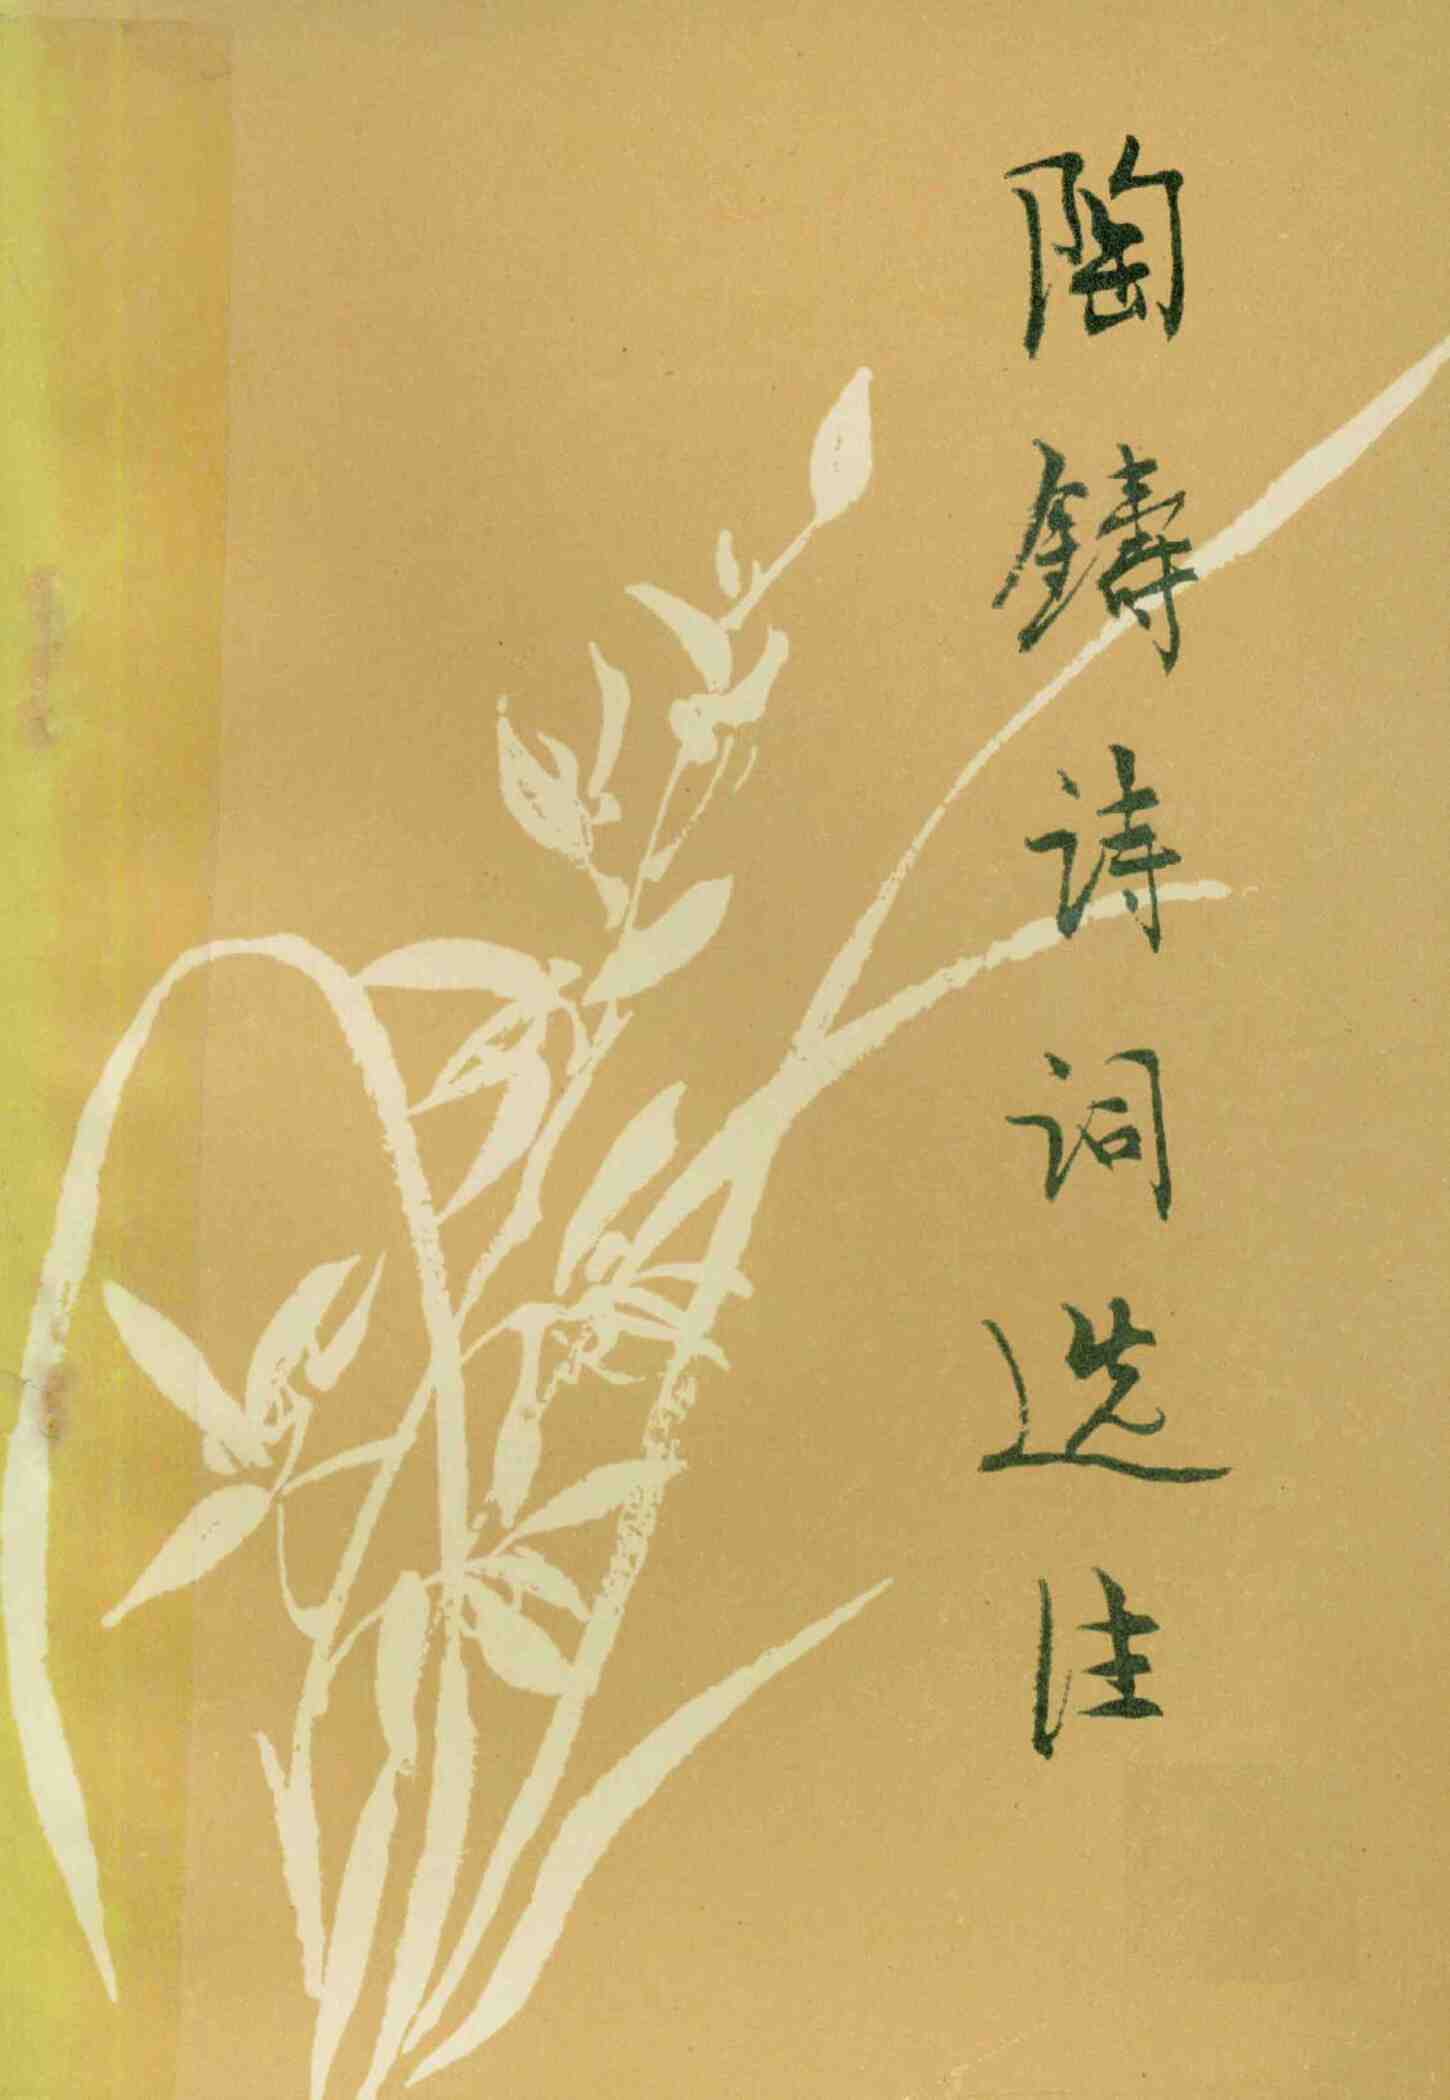 陶鑄诗词选注